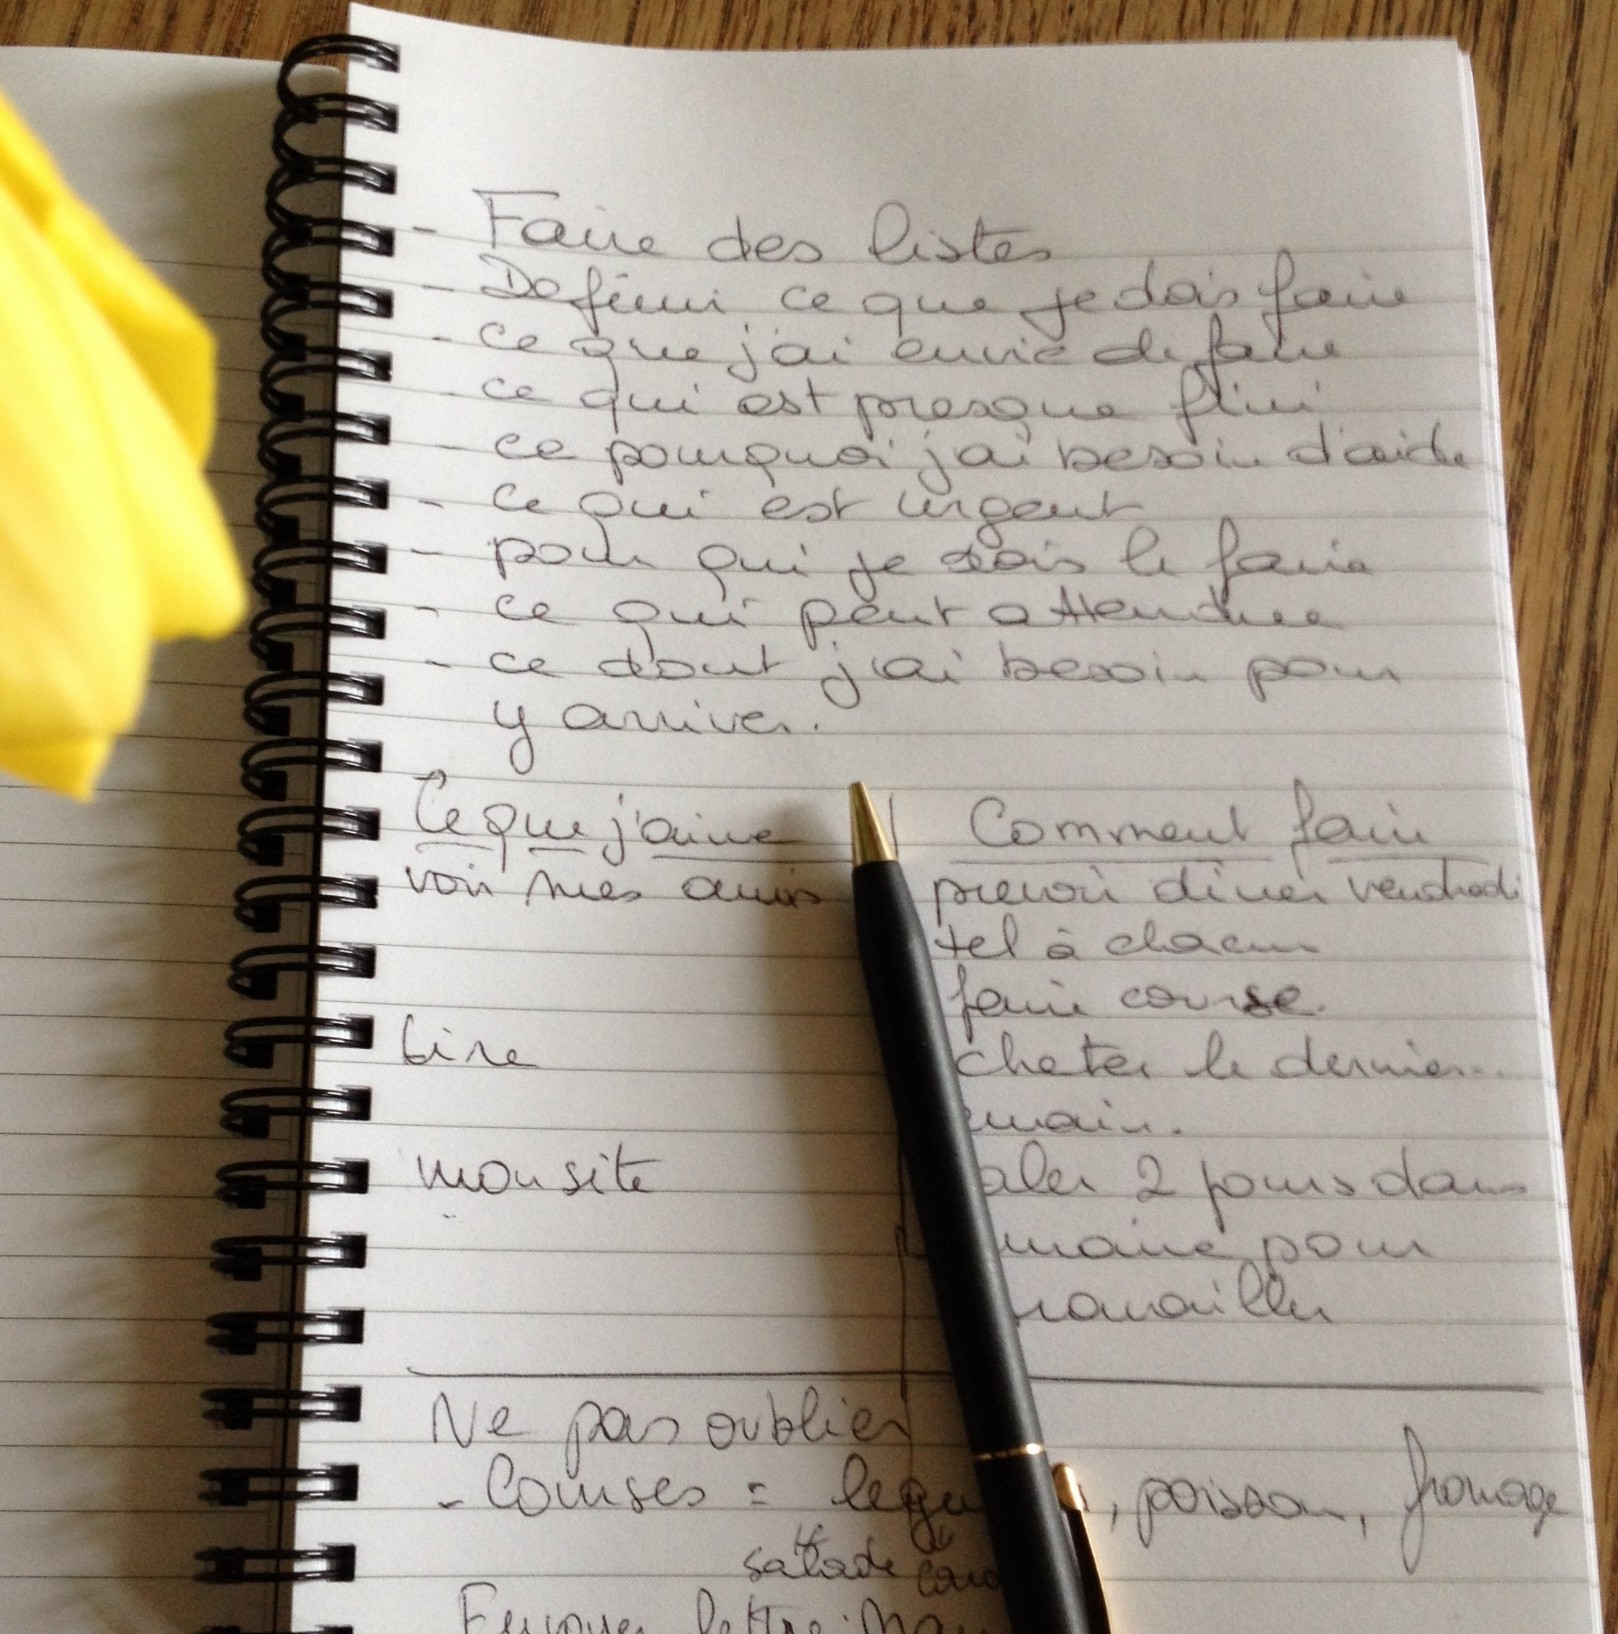 - Faire des listes
- Definir ce que je dois faire
- ce que j'ai envie de faire
- ce qui est presque fini
- ce pourquoi j'ai besoin d'aide
- ce qui est urgent
- pour qui je dois le faire
- ce qui peut attendre
- ce dont j'ai besoin pour
y arriver.
Ce que j'aime Comment faire
voir mes amis prevoir diner vendredi
tel à chacun
faire course.
Lire cheter le dernier...
main.
mon site 2 jours dans
pour
Ne pas oublier
- Courses = , poisson, fromage
salade
Envoyer lettre